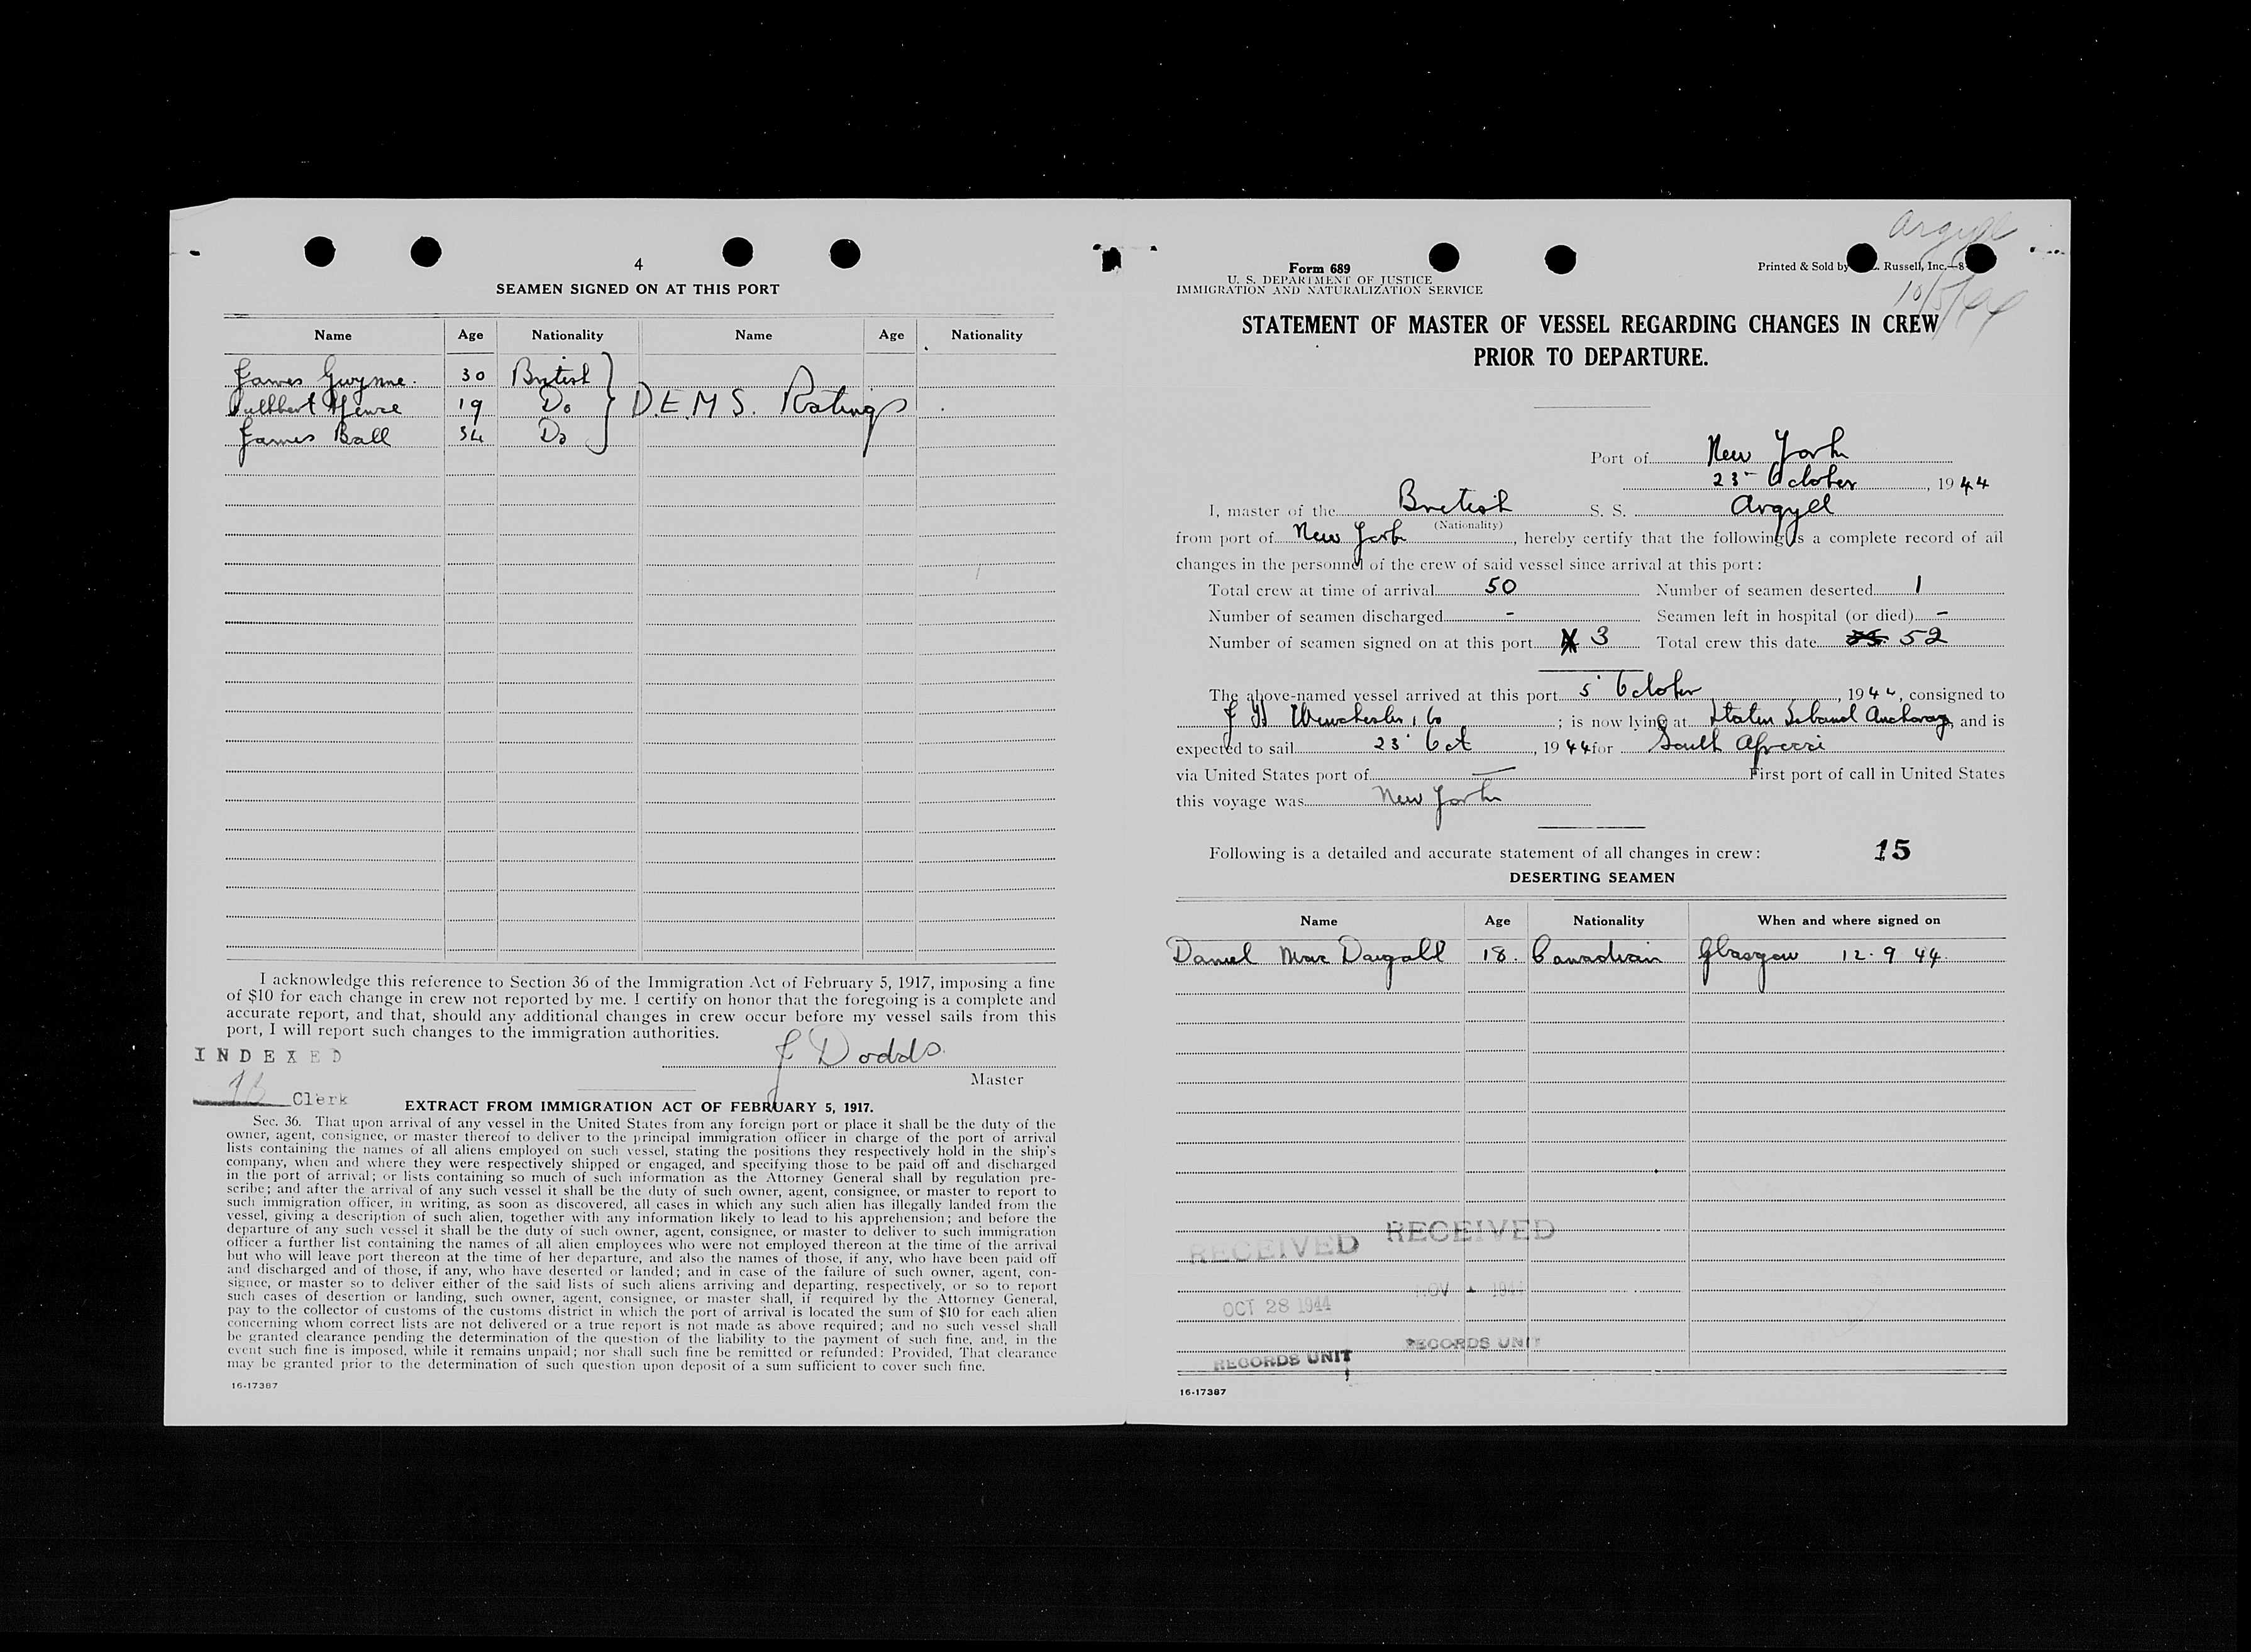 4
SEAMEN SIGNED ON AT THIS PORT
Name Age Nationality Name Age Nationality
James Gwynne. 30 British
19 Do D.E.M.S. Ratings
James Ball 34 Do
I acknowledge this reference to Section 36 of the Immigration Act of February 5, 1917, imposing a fine
of $10 for each change in crew not reported by me. I certify on honor that the foregoing is a complete and
accurate report, and that, should any additional changes in crew occur before my vessel sails from this
port, I will report such changes to the immigration authorities.
INDEXED
J Dodds
Master
Clerk
EXTRACT FROM IMMIGRATION ACT OF FEBRUARY 5, 1917.
Sec. 36. That upon arrival of any vessel in the United States from any foreign port or place it shall be the duty of the
owner, agent, consignee, or master thereof to deliver to the principal immigration officer in charge of the port of arrival
lists containing the names of all aliens employed on such vessel, stating the positions they respectively hold in the ship's
company, when and where they were respectively shipped or engaged, and specifying those to be paid off and discharged
in the port of arrival; or lists containing so much of such information as the Attorney General shall by regulation pre-
scribe; and after the arrival of any such vessel it shall be the duty of such owner, agent, consignee, or master to report to
such immigration officer, in writing, as soon as discovered, all cases in which any such alien has illegally landed from the
vessel, giving a description of such alien, together with any information likely to lead to his apprehension; and before the
departure of any such vessel it shall be the duty of such owner, agent, consignee, or master to deliver to such immigration
officer a further list containing the names of all alien employees who were not employed thereon at the time of the arrival
but who will leave port thereon at the time of her departure, and also the names of those, if any, who have been paid off
and discharged and of those, if any, who have deserted or landed; and in case of the failure of such owner, agent, con-
signee, or master so to deliver either of the said lists of such aliens arriving and departing, respectively, or so to report
such cases of desertion or landing, such owner, agent, consignee, or master shall, if required by the Attorney General,
pay to the collector of customs of the customs district in which the port of arrival is located the sum of $10 for each alien
concerning whom correct lists are not delivered or a true report is not made as above required; and no such vessel shall
be granted clearance pending the determination of the question of the liability to the payment of such fine, and, in the
event such fine is imposed, while it remains unpaid; nor shall such fine be remitted or refunded: Provided, That clearance
may be granted prior to the determination of such question upon deposit of a sum sufficient to cover such fine.
16-17387
Argyll
Form 689
U. S. DEPARTMENT OF JUSTICE
IMMIGRATION AND NATURALIZATION SERVICE
Printed & Sold by Russell, Inc.—8
10/5/44
STATEMENT OF MASTER OF VESSEL REGARDING CHANGES IN CREW
PRIOR TO DEPARTURE.
Port of New York
23 October, 1944
I, master of the British S. S. Argyll
(Nationality)
from port of New York, hereby certify that the following is a complete record of all
changes in the personnel of the crew of said vessel since arrival at this port:
Total crew at time of arrival 50 Number of seamen deserted 1
Number of seamen discharged - Seamen left in hospital (or died) -
Number of seamen signed on at this port 3 Total crew this date 52
The above-named vessel arrived at this port 5 October, 1944, consigned to
J Winchester, Co; is now lying at Staten Island Anchorage, and is
expected to sail 23 Oct, 1944 for South Africa
via United States port of — First port of call in United States
this voyage was New York
Following is a detailed and accurate statement of all changes in crew: 15
DESERTING SEAMEN
Name Age Nationality When and where signed on
Daniel Mac Dougall 18. Canadian Glasgow 12.9 44.
RECEIVED RECEIVED
OCT 28 1944 NOV 1944
RECORDS UNIT RECORDS UNIT
16-17387